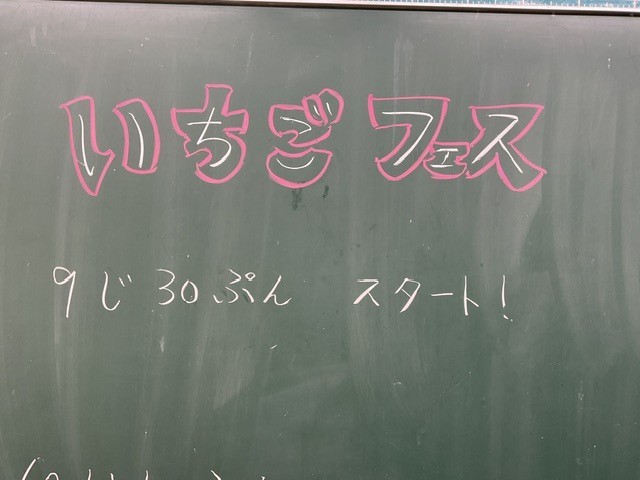 いちごフェス
9じ30ぷん スタート!